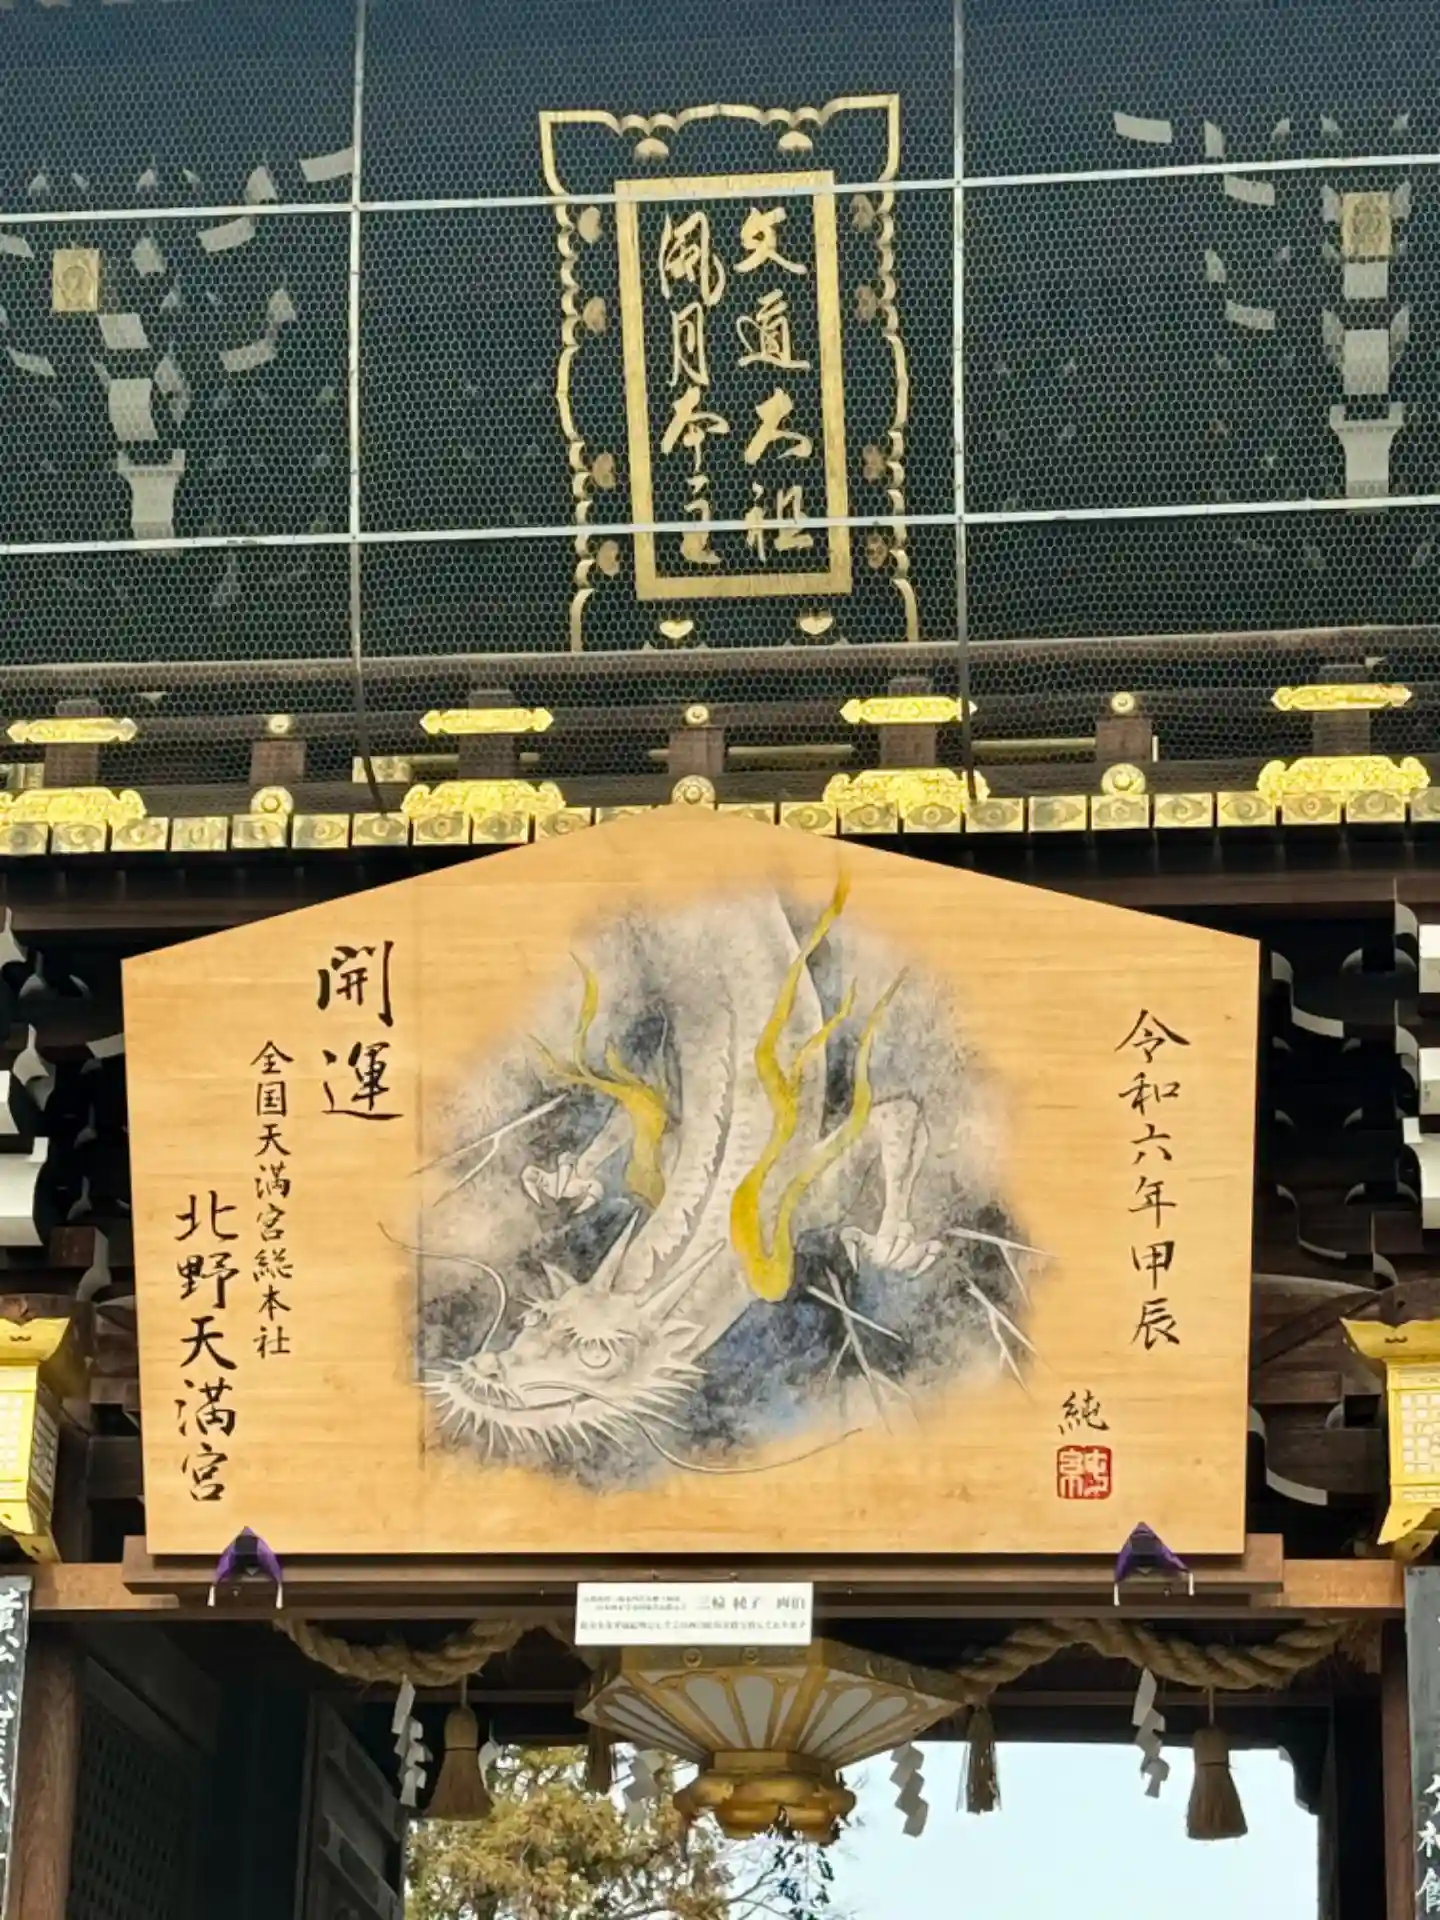 文道大祖
風月本主
令和六年甲辰
純
開運
全国天満宮総本社
北野天満宮
三輪 純子 画伯